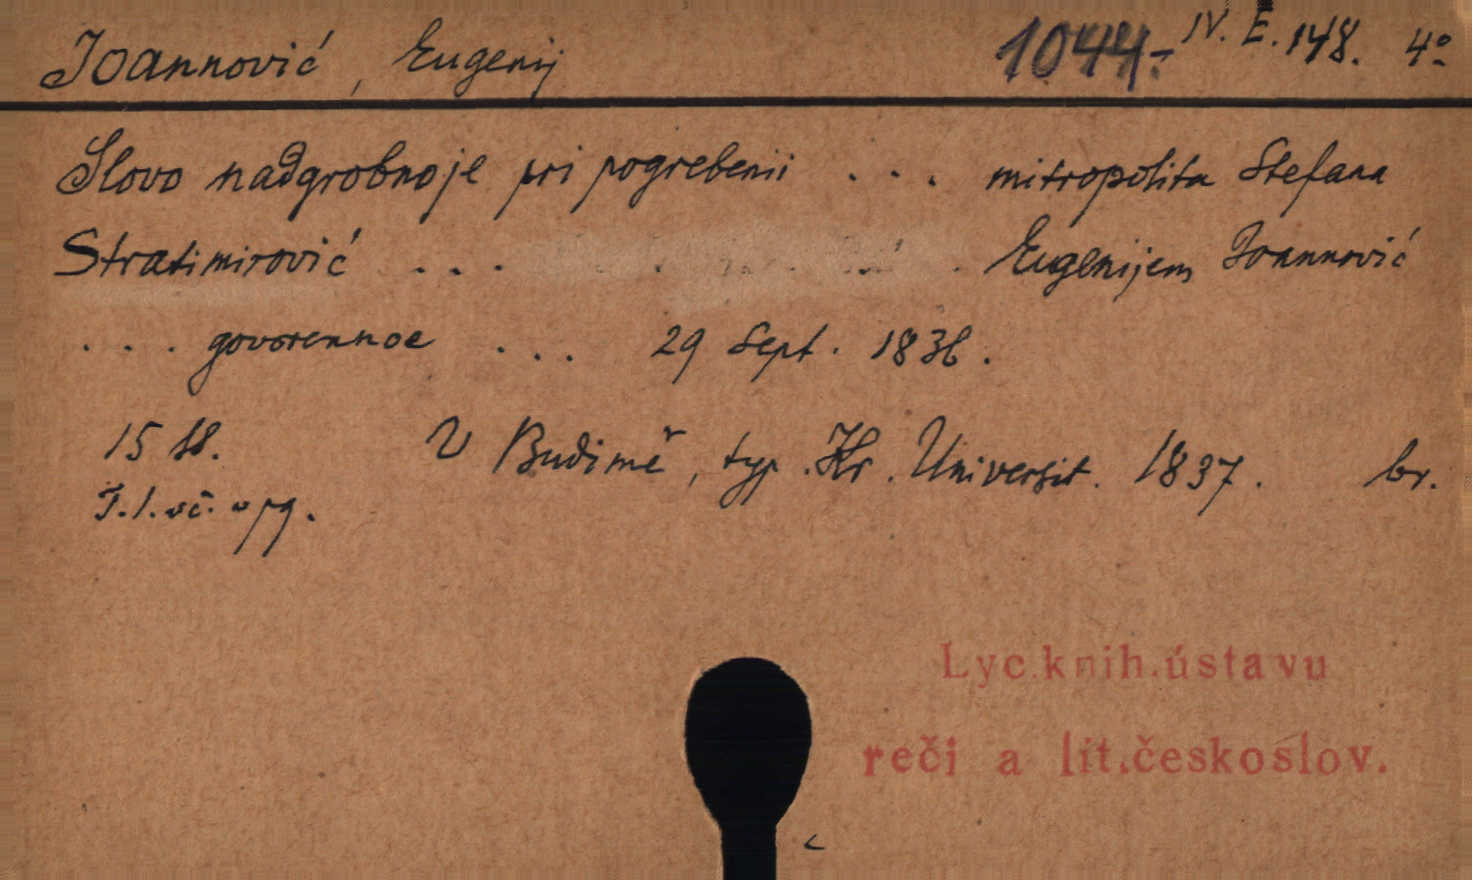 Joannović, Eugenij 1044.- IV. E. 148. 4°
Slovo nadgrobnoje pri pogrebenii . . . mitropolita Stefana
Stratimirović . . . Eugenijem Joannović
. . . govorennoe . . . 29 Sept. 1836.
15 st. V Budimě, typ. Kr. Universit. 1837. br.
T. l. vč. v pg.
Lyc.knih.ústavu
reči a lit.českoslov.